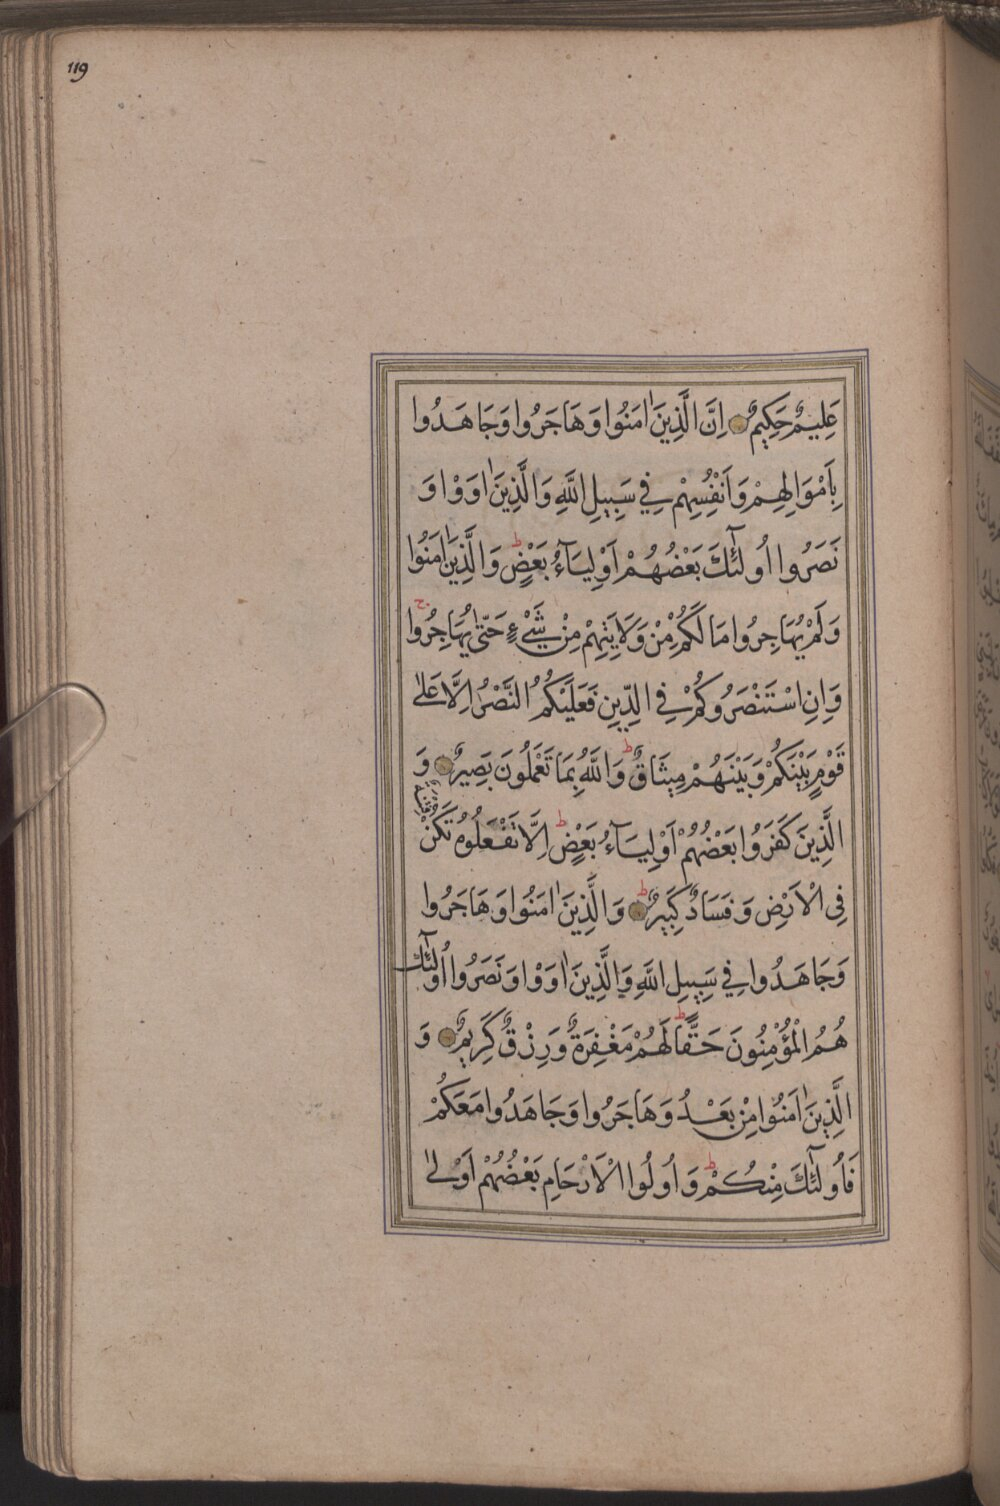 119
عَلِيمٌ حَكِيمٌ اِنَّ الَّذِينَ اٰمَنُوا وَهَاجَرُوا وَجَاهَدُوا
بِاَمْوَالِهِمْ وَاَنْفُسِهِمْ فِي سَبِيلِ اللَّهِ وَالَّذِينَ اٰوَوْا وَ
نَصَرُوا اُولٰٓئِكَ بَعْضُهُمْ اَوْلِيَآءُ بَعْضٍ ط وَالَّذِينَ اٰمَنُوا
وَلَمْ يُهَاجِرُوا مَا لَكُمْ مِنْ وَلَايَتِهِمْ مِنْ شَيْءٍ حَتّٰى يُهَاجِرُوا ج
وَاِنِ اسْتَنْصَرُوكُمْ فِي الدِّينِ فَعَلَيْكُمُ النَّصْرُ اِلَّا عَلٰى
قَوْمٍ بَيْنَكُمْ وَبَيْنَهُمْ مِيثَاقٌ ط وَاللَّهُ بِمَا تَعْمَلُونَ بَصِيرٌ وَ
الَّذِينَ كَفَرُوا بَعْضُهُمْ اَوْلِيَآءُ بَعْضٍ ط اِلَّا تَفْعَلُوهُ تَكُنْ
فِي الْاَرْضِ وَفَسَادٌ كَبِيرٌ ط وَالَّذِينَ اٰمَنُوا وَهَاجَرُوا
وَجَاهَدُوا فِي سَبِيلِ اللَّهِ وَالَّذِينَ اٰوَوْا وَنَصَرُوا اُولٰٓئِكَ
هُمُ الْمُؤْمِنُونَ حَقًّا ط لَهُمْ مَغْفِرَةٌ وَرِزْقٌ كَرِيمٌ وَ
الَّذِينَ اٰمَنُوا مِنْ بَعْدُ وَهَاجَرُوا وَجَاهَدُوا مَعَكُمْ
فَاُولٰٓئِكَ مِنْكُمْ ط وَاُولُوا الْاَرْحَامِ بَعْضُهُمْ اَوْلٰى